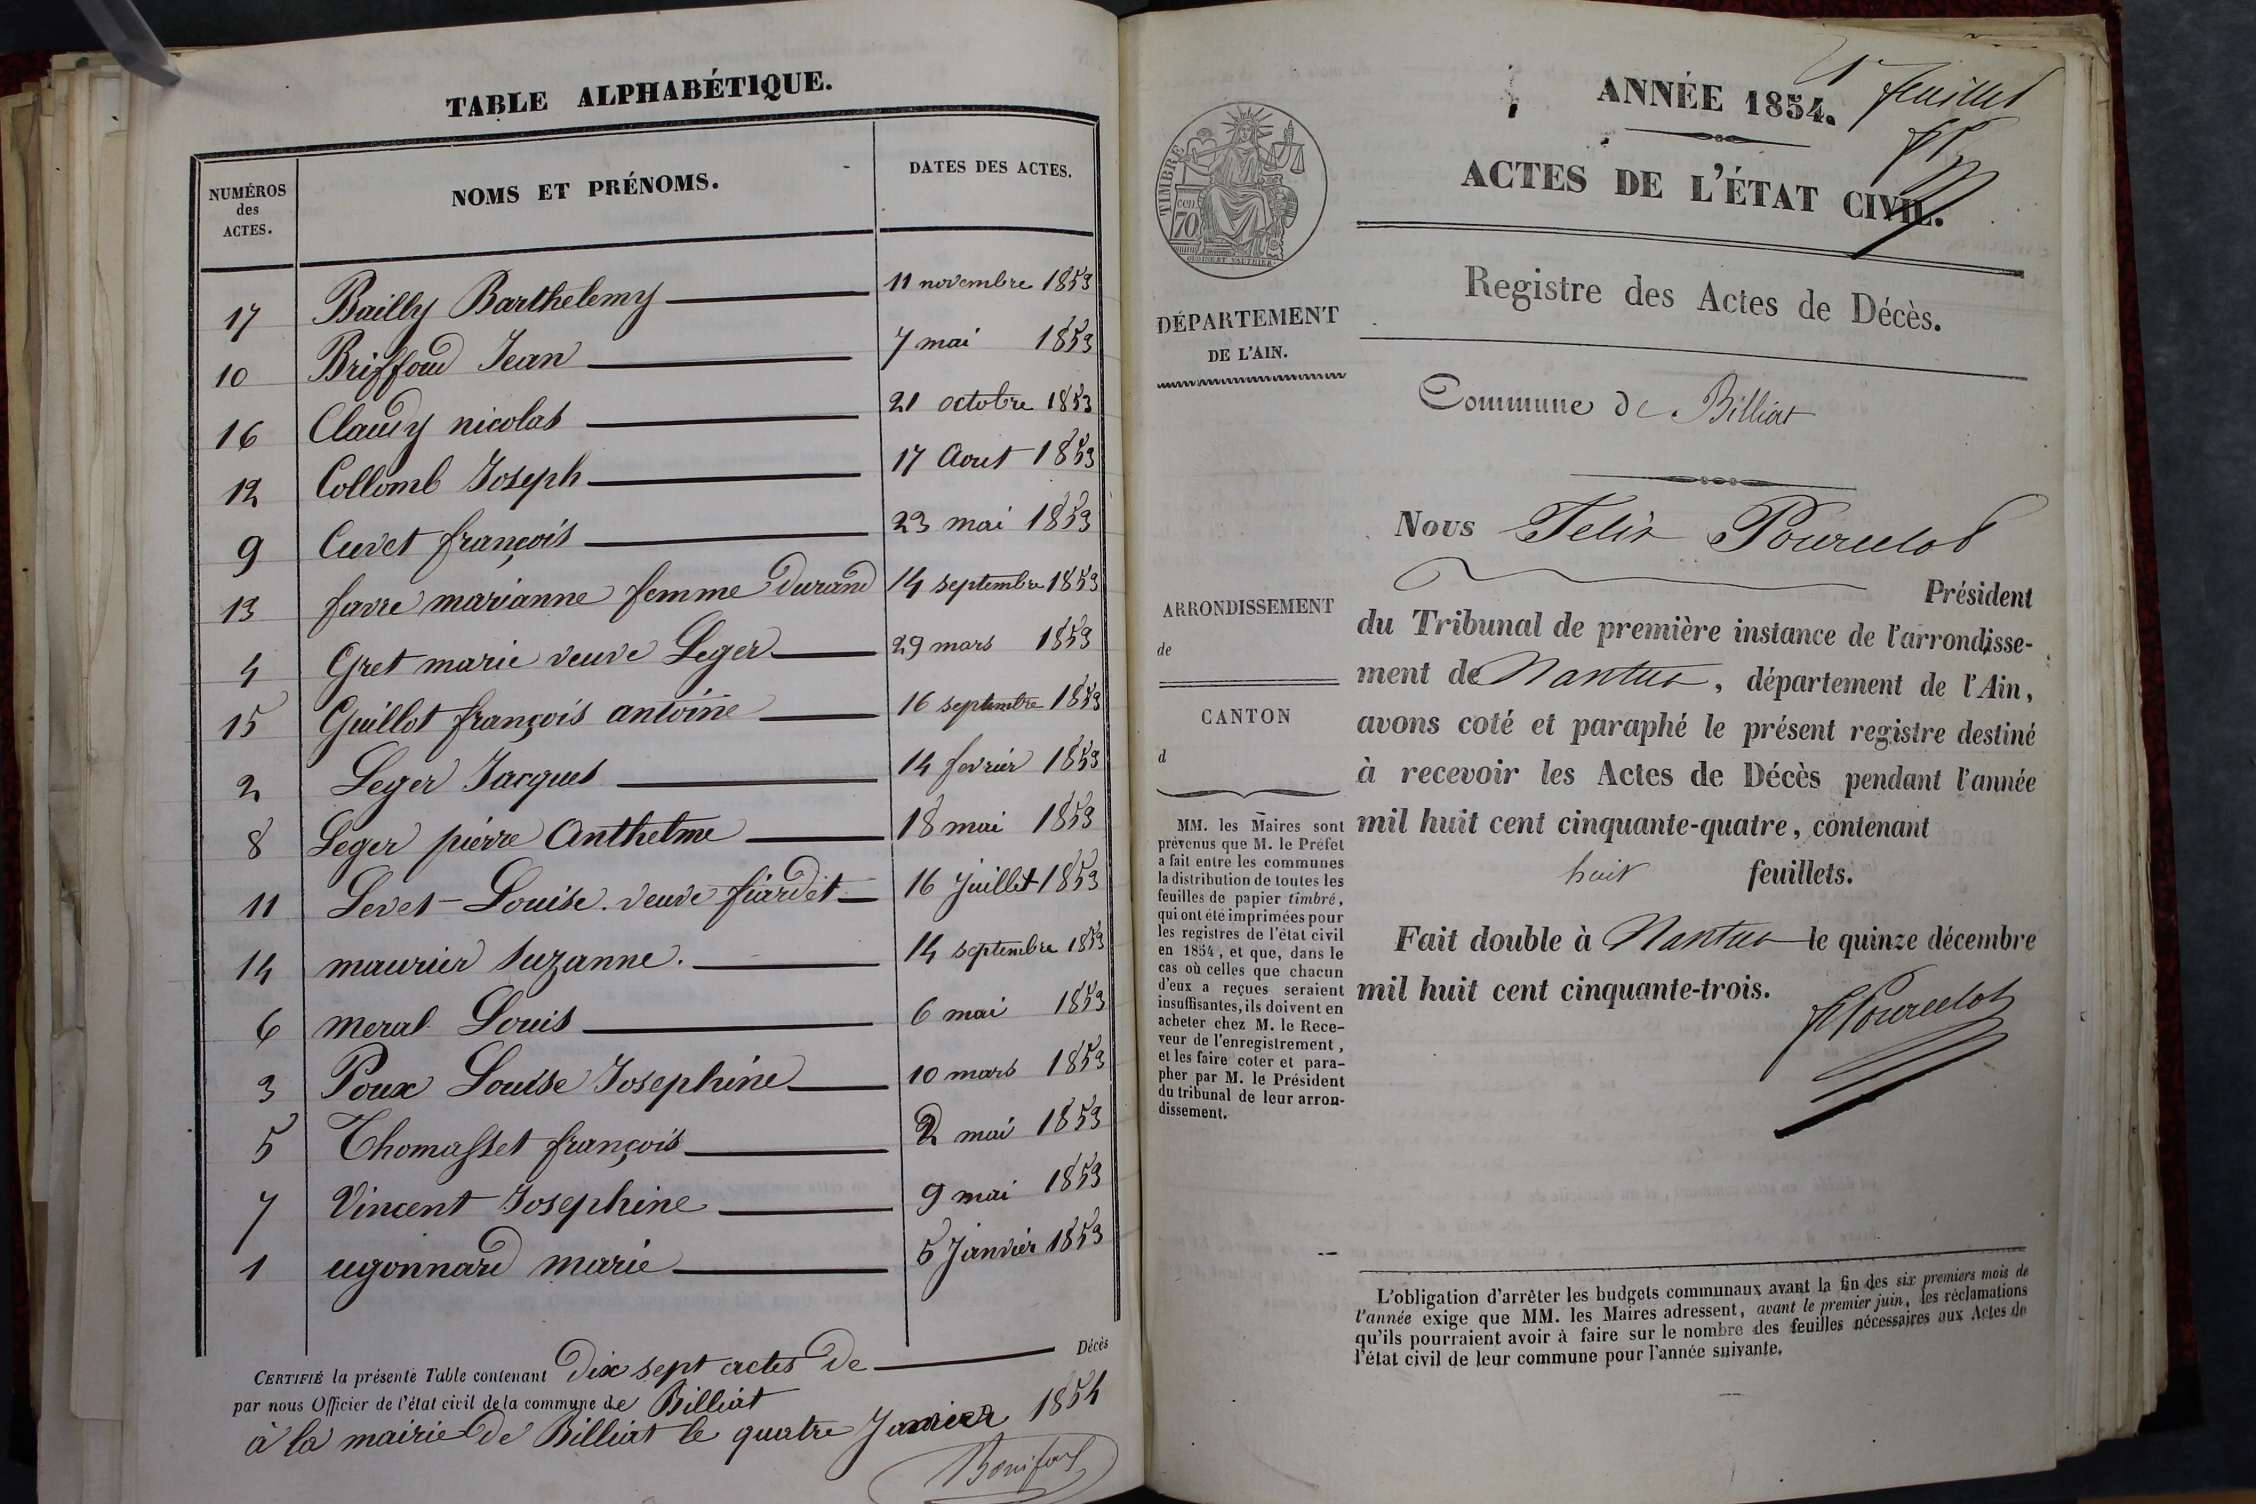 TABLE ALPHABÉTIQUE.
NUMÉROS
des
ACTES.
NOMS ET PRÉNOMS.
DATES DES ACTES.
17 Bailly Barthelemy 11 novembre 1853
10 Briffoud Jean 7 mai 1853
16 Claudy nicolas 21 octobre 1853
12 Collomb Joseph 17 Aout 1853
9 Cuvet françois 23 mai 1853
13 favre marianne femme Durand 14 septembre 1853
4 Gret marie veuve Leger 29 mars 1853
15 Guillot françois antoine 16 septembre 1853
2 Leger Jacques 14 fevrier 1853
8 Leger pierre Anthelme 18 mai 1853
11 Levet Louise. veuve fiardet 16 Juillet 1853
14 maurier Suzanne. 14 septembre 1853
6 meral Louis 6 mai 1853
3 Poux Louise Josephine 10 mars 1853
5 Thomasset françois 2 mai 1853
7 Vincent Josephine 9 mai 1853
1 ugonnard marie 5 Janvier 1853
CERTIFIÉ la présente Table contenant Dix sept actes de Décès
par nous Officier de l'état civil de la commune de Billiat
à la mairie de Billiat le quatre Janvier 1854
1er feuillet
ANNÉE 1854.
ACTES DE L'ÉTAT CIVIL.
TIMBRE
cen.
70
Registre des Actes de Décès.
DÉPARTEMENT
DE L'AIN.
Commune de Billiat
Nous Felix Pourcelot
Président
du Tribunal de première instance de l'arrondisse-
ment de Nantua, département de l'Ain,
avons coté et paraphé le présent registre destiné
à recevoir les Actes de Décès pendant l'année
mil huit cent cinquante-quatre, contenant
huit feuillets.
Fait double à Nantua le quinze décembre
mil huit cent cinquante-trois.
Pourcelot
ARRONDISSEMENT
de
CANTON
d
MM. les Maires sont
prévenus que M. le Préfet
a fait entre les communes
la distribution de toutes les
feuilles de papier timbré,
qui ont été imprimées pour
les registres de l'état civil
en 1854, et que, dans le
cas où celles que chacun
d'eux a reçues seraient
insuffisantes, ils doivent en
acheter chez M. le Rece-
veur de l'enregistrement,
et les faire coter et para-
pher par M. le Président
du tribunal de leur arron-
dissement.
L'obligation d'arrêter les budgets communaux avant la fin des six premiers mois de
l'année exige que MM. les Maires adressent, avant le premier juin, les réclamations
qu'ils pourraient avoir à faire sur le nombre des feuilles nécessaires aux Actes de
l'état civil de leur commune pour l'année suivante.